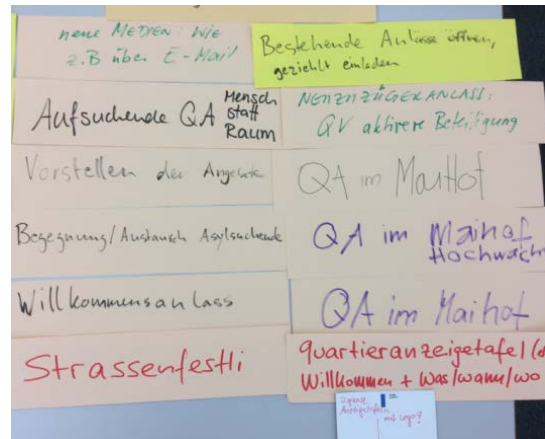 neue MEDIEN: Wie
z.B über E-Mail
Bestehende Anlässe öffnen,
geziehlt einladen
Aufsuchende QA Mensch
statt
Raum
NEUZUZÜGERANLASS:
QV aktivere Beteiligung
Vorstellen der Angebote
QA im MaiHof
Begegnung/Austausch Asylsuchende
QA im Maihof
Hochwacht
Willkommensanlass
QA im Maihof
Strassenfestli
Quartieranzeigetafel (d
Willkommen + Was/wann/wo
mit Logo?